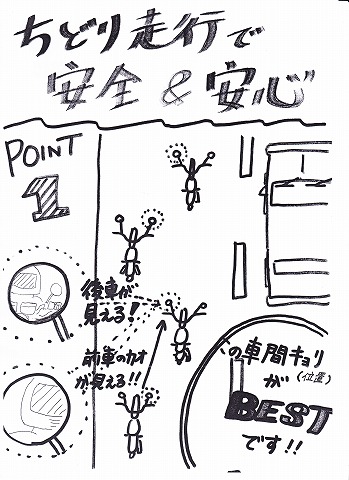 ちどり走行で
安全&安心
POINT
1
後車が
見える!
前車のカオ
が見える!!
の車間キョリ
(位置)
が
BEST
です!!